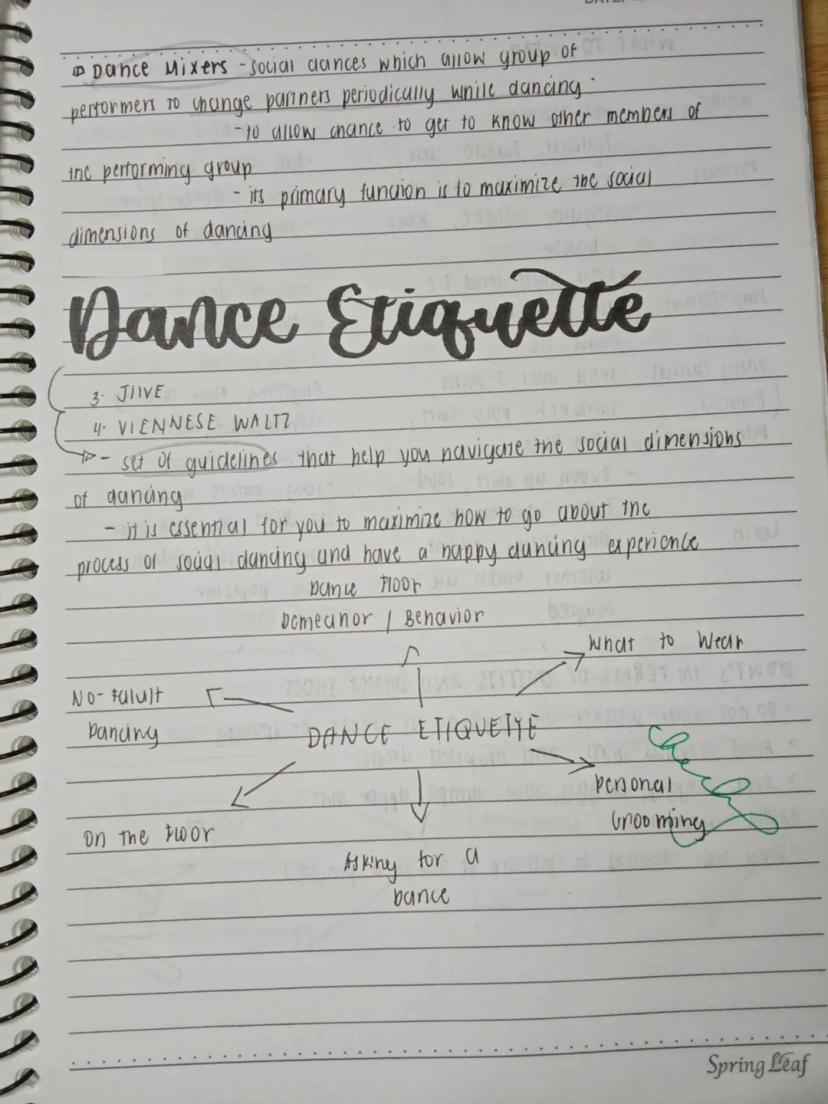 Dance Mixers - social dances which allow group of
performers to change partners periodically while dancing.
- to allow chance to get to know other members of
the performing group
- its primary function is to maximize the social
dimensions of dancing
Dance Etiquette
3. JIVE
4. VIENNESE WALTZ
- set of guidelines that help you navigate the social dimensions
of dancing
- it is essential for you to maximize how to go about the
process of social dancing and have a happy dancing experience
Dance Floor
Demeanor / Behavior
What to Wear
No-Fault
Dancing
DANCE ETIQUETTE
Personal
Grooming
On the Floor
Asking for a
Dance
Spring Leaf